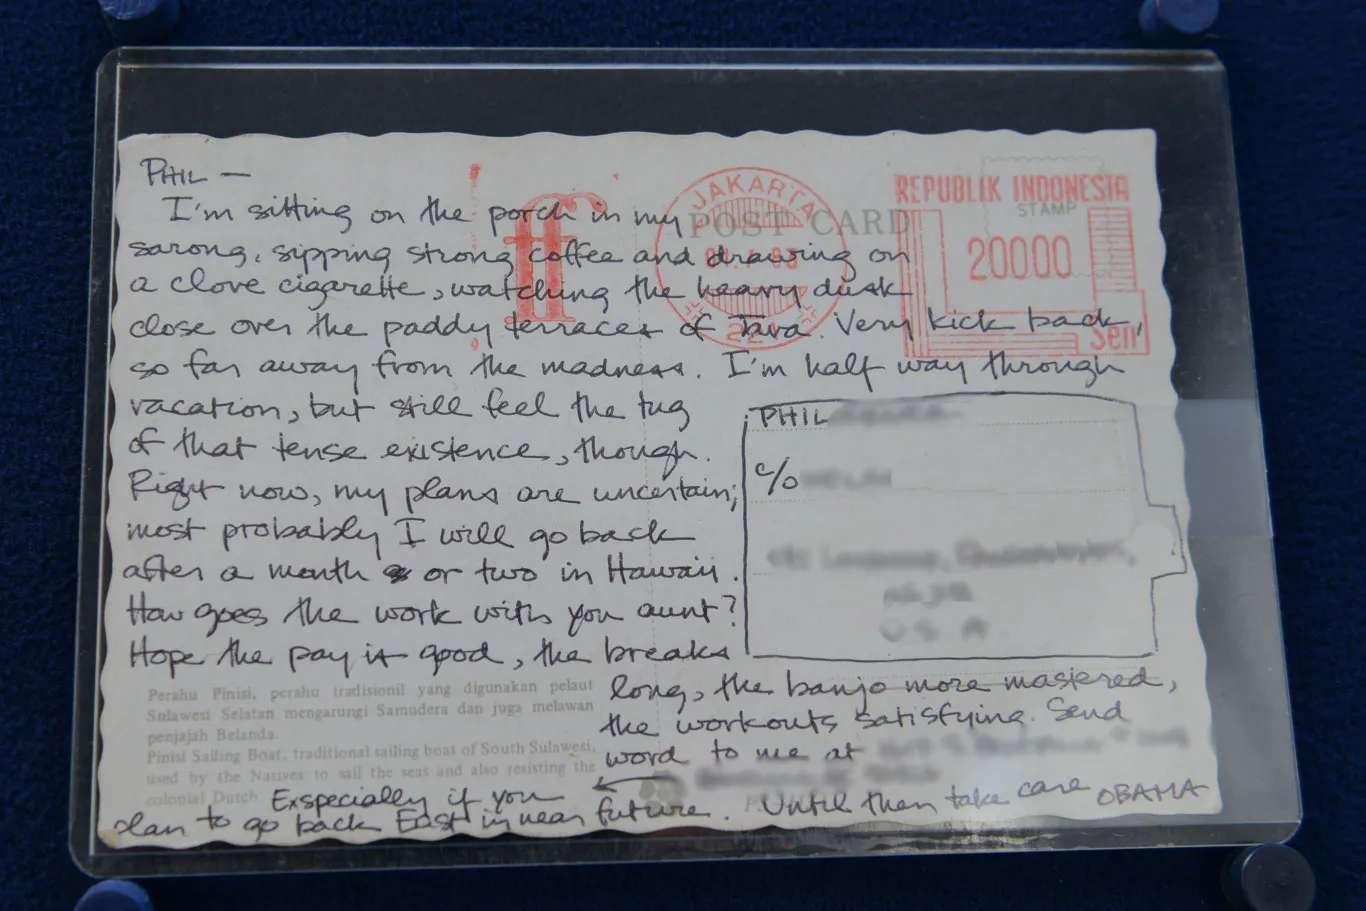 PHIL —
I'm sitting on the porch in my
sarong, sipping strong coffee and drawing on
a clove cigarette, watching the heavy dusk
close over the paddy terraces of Java. Very kick back,
so far away from the madness. I'm half way through
vacation, but still feel the tug
of that tense existence, though.
Right now, my plans are uncertain;
most probably I will go back
after a month or two in Hawaii.
How goes the work with you aunt?
Hope the pay is good, the breaks
long, the banjo more mastered,
the workouts satisfying. Send
word to me at
Exspecially if you
plan to go back East in near future. Until then take care OBAMA
POST CARD
STAMP
JAKARTA
22
REPUBLIK INDONESIA
20000
Sen
PHIL
c/o
U S A
Perahu Pinisi, perahu tradisionil yang digunakan pelaut
Sulawesi Selatan mengarungi Samudera dan juga melawan
penjajah Belanda.
Pinisi Sailing Boat, traditional sailing boat of South Sulawesi,
used by the Natives to sail the seas and also resisting the
colonial Dutch